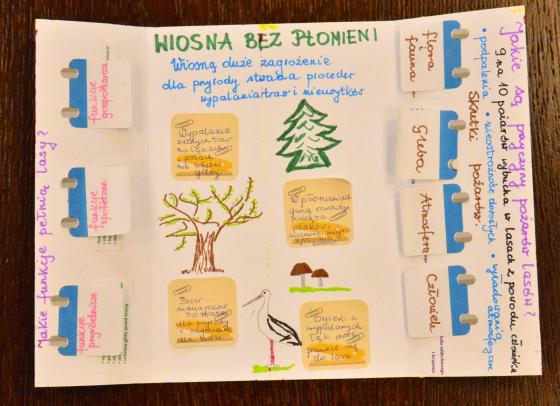 WIOSNA BEZ PŁOMIENI
Wiosną duże zagrożenie
dla przyrody stwarza proceder
wypalania traw i nieużytków
Jakie funkcje pełnią lasy?
funkcje
gospodarcze
funkcje
społeczne
funkcje
przyrodnicze
Wypalanie
i pola
nie
gleby
W płomieniach
giną owady
ptaków
Pożar
nieużytków
dla przyrody
dla ludzi
Ogień z
wypalanych
łąk może
przenieść się
do lasu
flora
i
fauna
Gleba
Atmosfera
Człowiek
Skutki pożarów
• podpalenia • nieostrożność dorosłych • wyładowania atmosferyczne
9 na 10 pożarów wybucha w lasach z powodu człowieka
Jakie są przyczyny pożarów lasów?